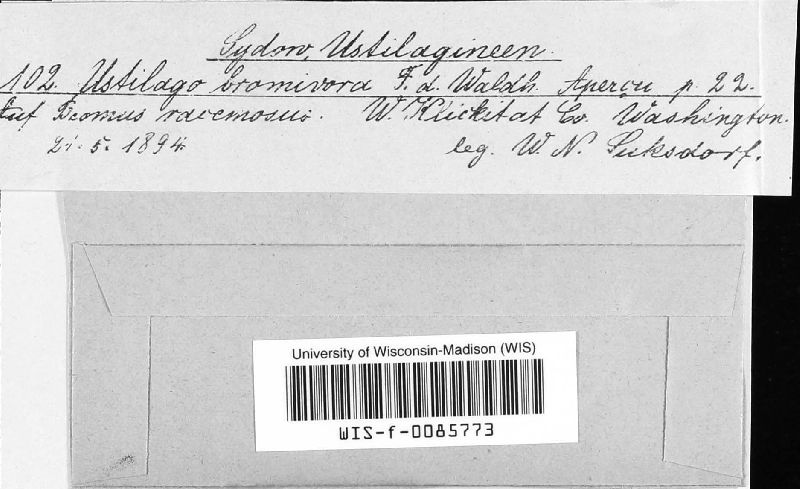 Sydow, Ustilagineen.
102. Ustilago bromivora F. d. Waldh. Aperçu p. 22.
Auf Bromus racemosus. W. Klickitat Co. Washington.
21. 5. 1894. leg. W. N. Suksdorf.
University of Wisconsin-Madison (WIS)
WIS-f-0085773